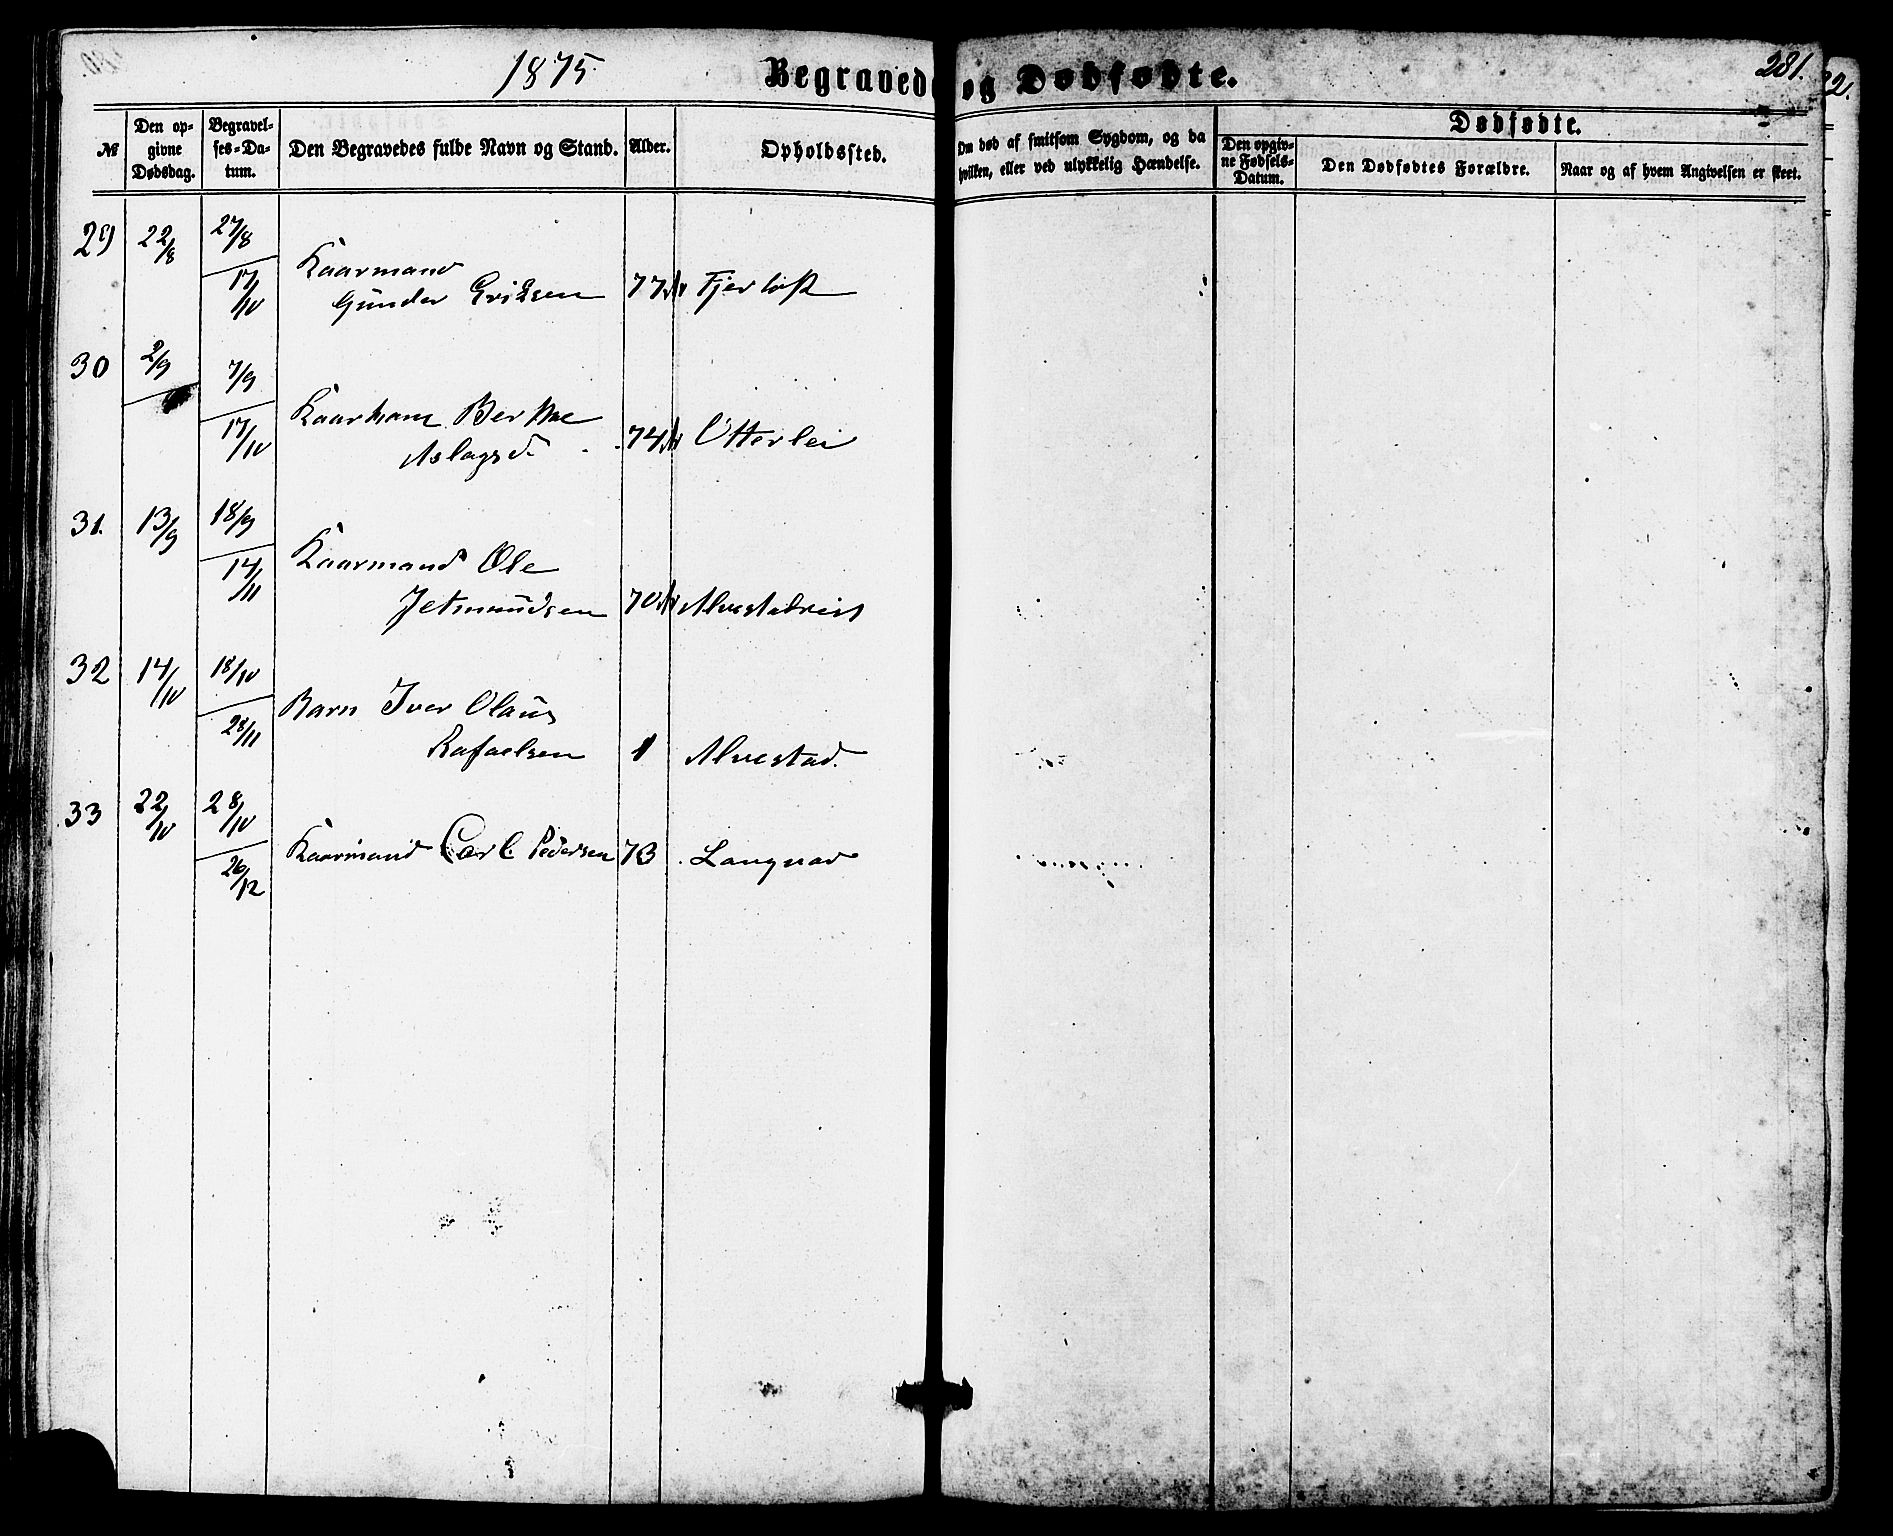 1875
Begravede og Dødfødte.
281.
№
Den op-
givne
Dødsdag.
Begravel-
ses-Da-
tum.
Den Begravedes fulde Navn og Stand.
Alder.
Opholdssted.
Om død af smitsom Sygdom, og da
hvilken, eller ved ulykkelig Hændelse.
Dødfødte.
Den opgiv-
ne Fødsels-
Datum.
Den Dødfødtes Forældre.
Naar og af hvem Angivelsen er skeet.
29 22/8 27/8
17/10 Kaarmand
Gunder Eriksen 77 Fjertoft
30 2/9 7/9
17/10 Kaarkone Berthe
Aslagsd. 74 Otterlei
31. 13/9 18/9
14/11 Kaarmand Ole
Jetmundsen 70
32 14/10 18/10
28/11 Barn Iver Olaus
Rafaelsen 1 Alvestad.
33 22/10 28/10
26/12 Kaarmand Carl Pedersen 73 Langvad